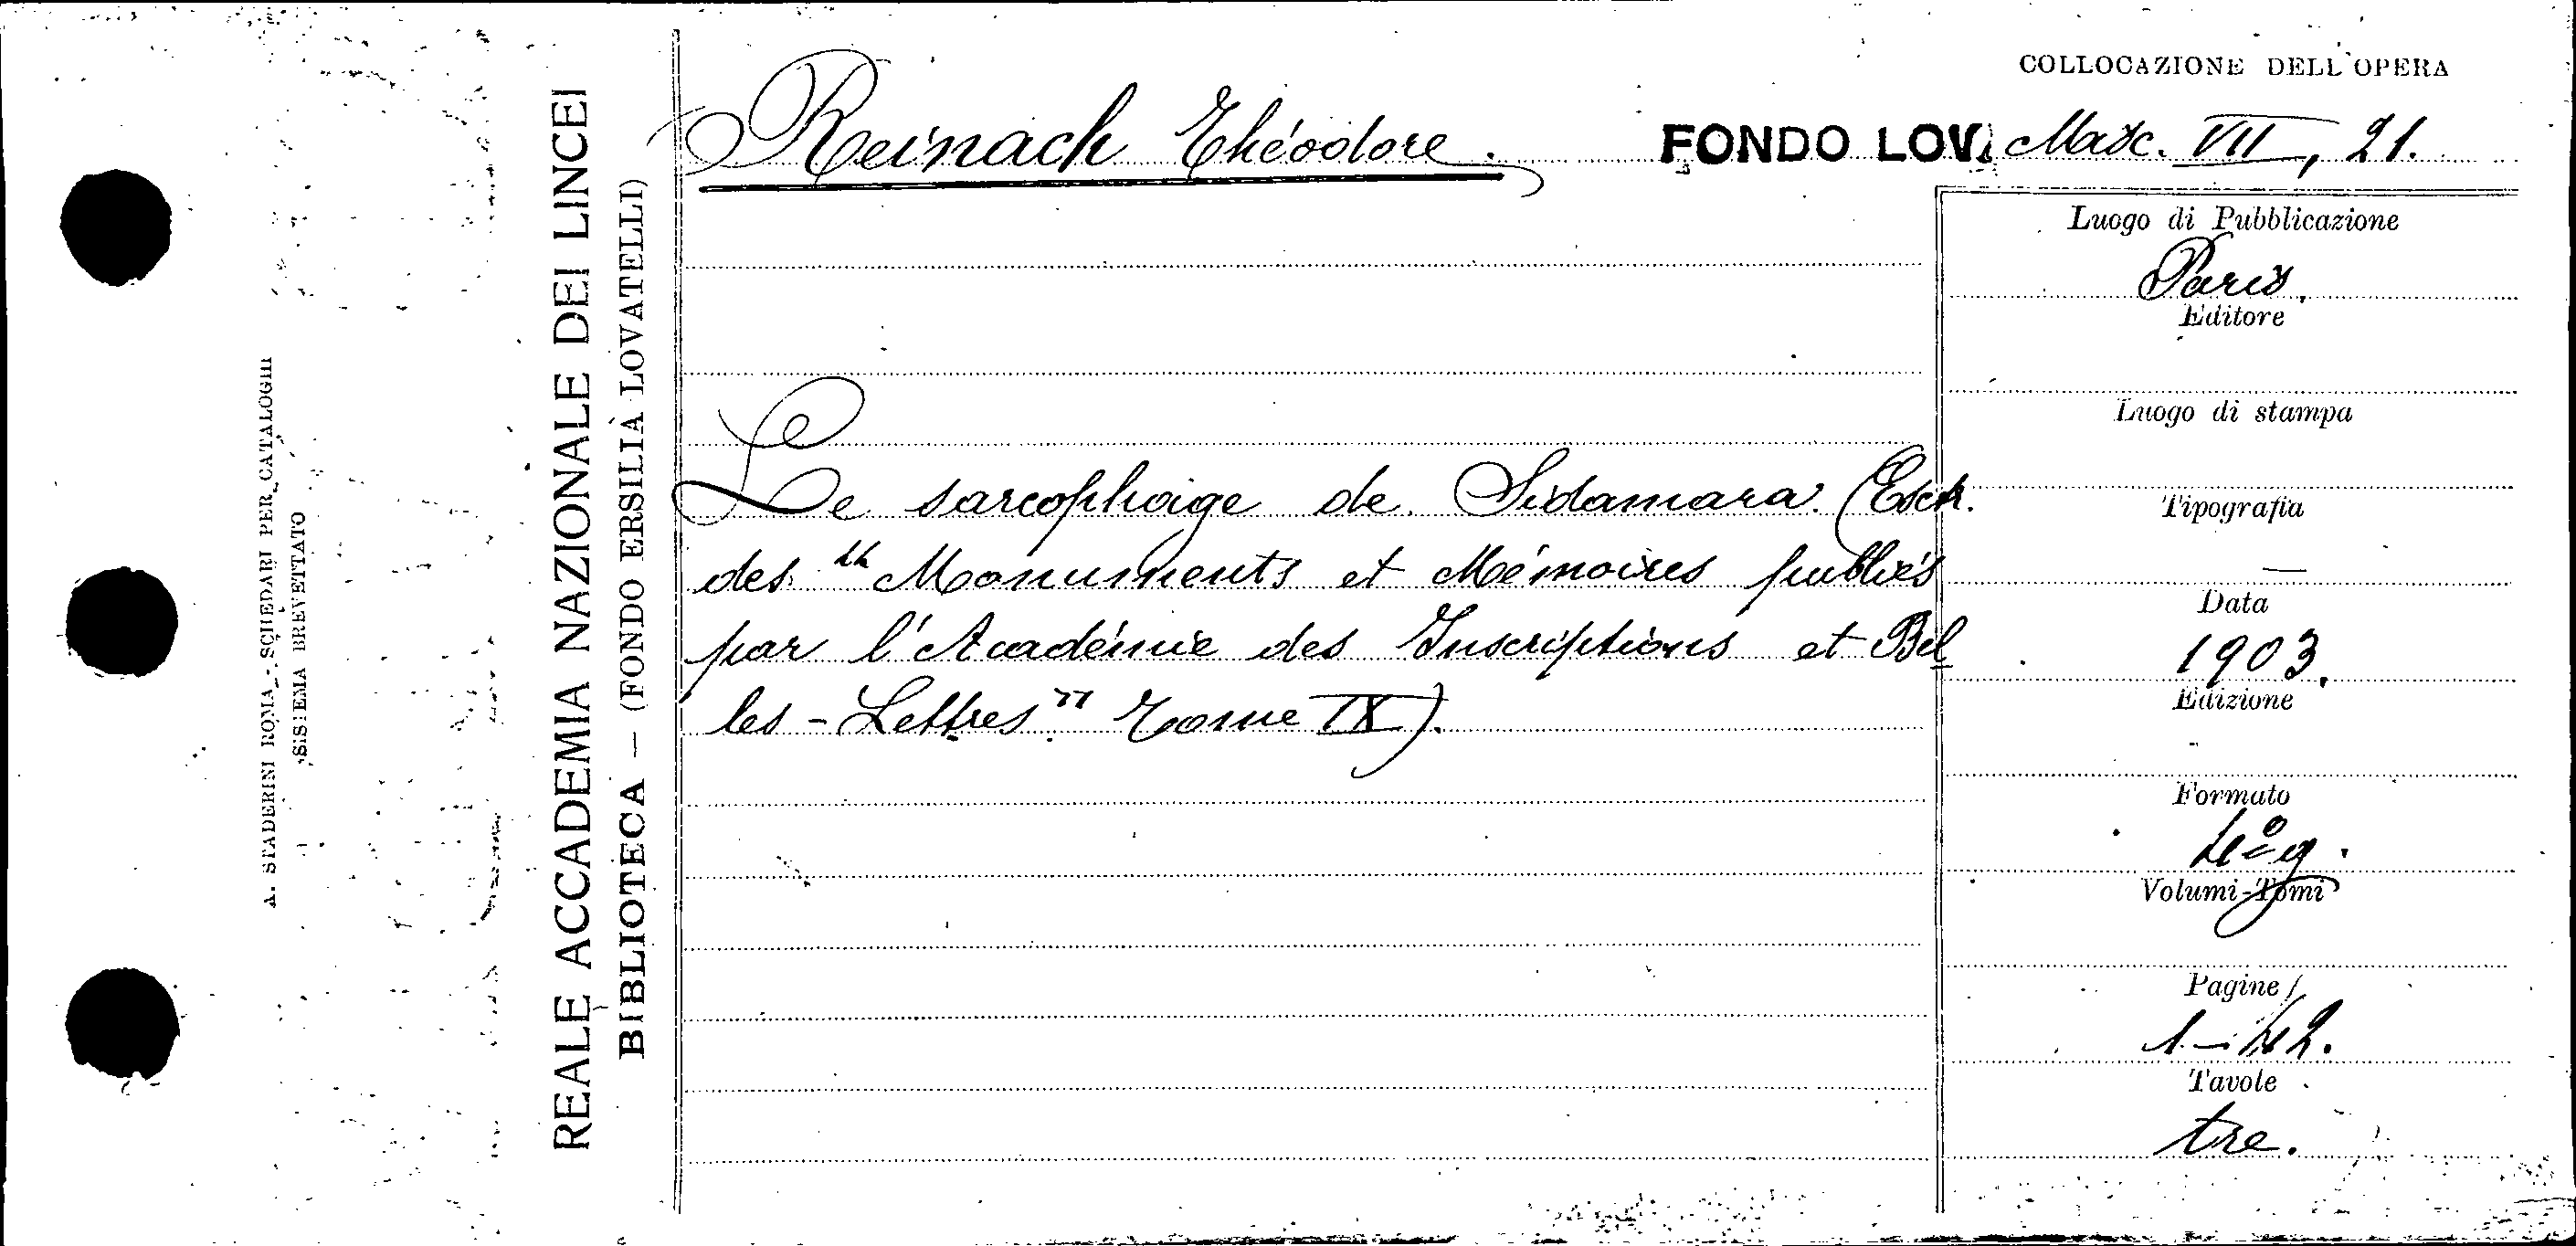 COLLOCAZIONE DELL'OPERA
Reinach Théodore.
FONDO LOV. Misc. VII, 21.
Le sarcophage de Sidamara. (Extr.
des "Monuments et Mémoires publiés
par l'Académie des Inscriptions et Bel
les-Lettres" Tome IX).
Luogo di Pubblicazione
Paris.
Editore
Luogo di stampa
Tipografia
—
Data
1903.
Edizione
Formato
4º g.
Volumi-Tomi
Pagine
1-42.
Tavole
tre.
REALE ACCADEMIA NAZIONALE DEI LINCEI
BIBLIOTECA — (FONDO ERSILIA LOVATELLI)
A. STADERINI ROMA - SCHEDARI PER CATALOGHI
SISTEMA BREVETTATO